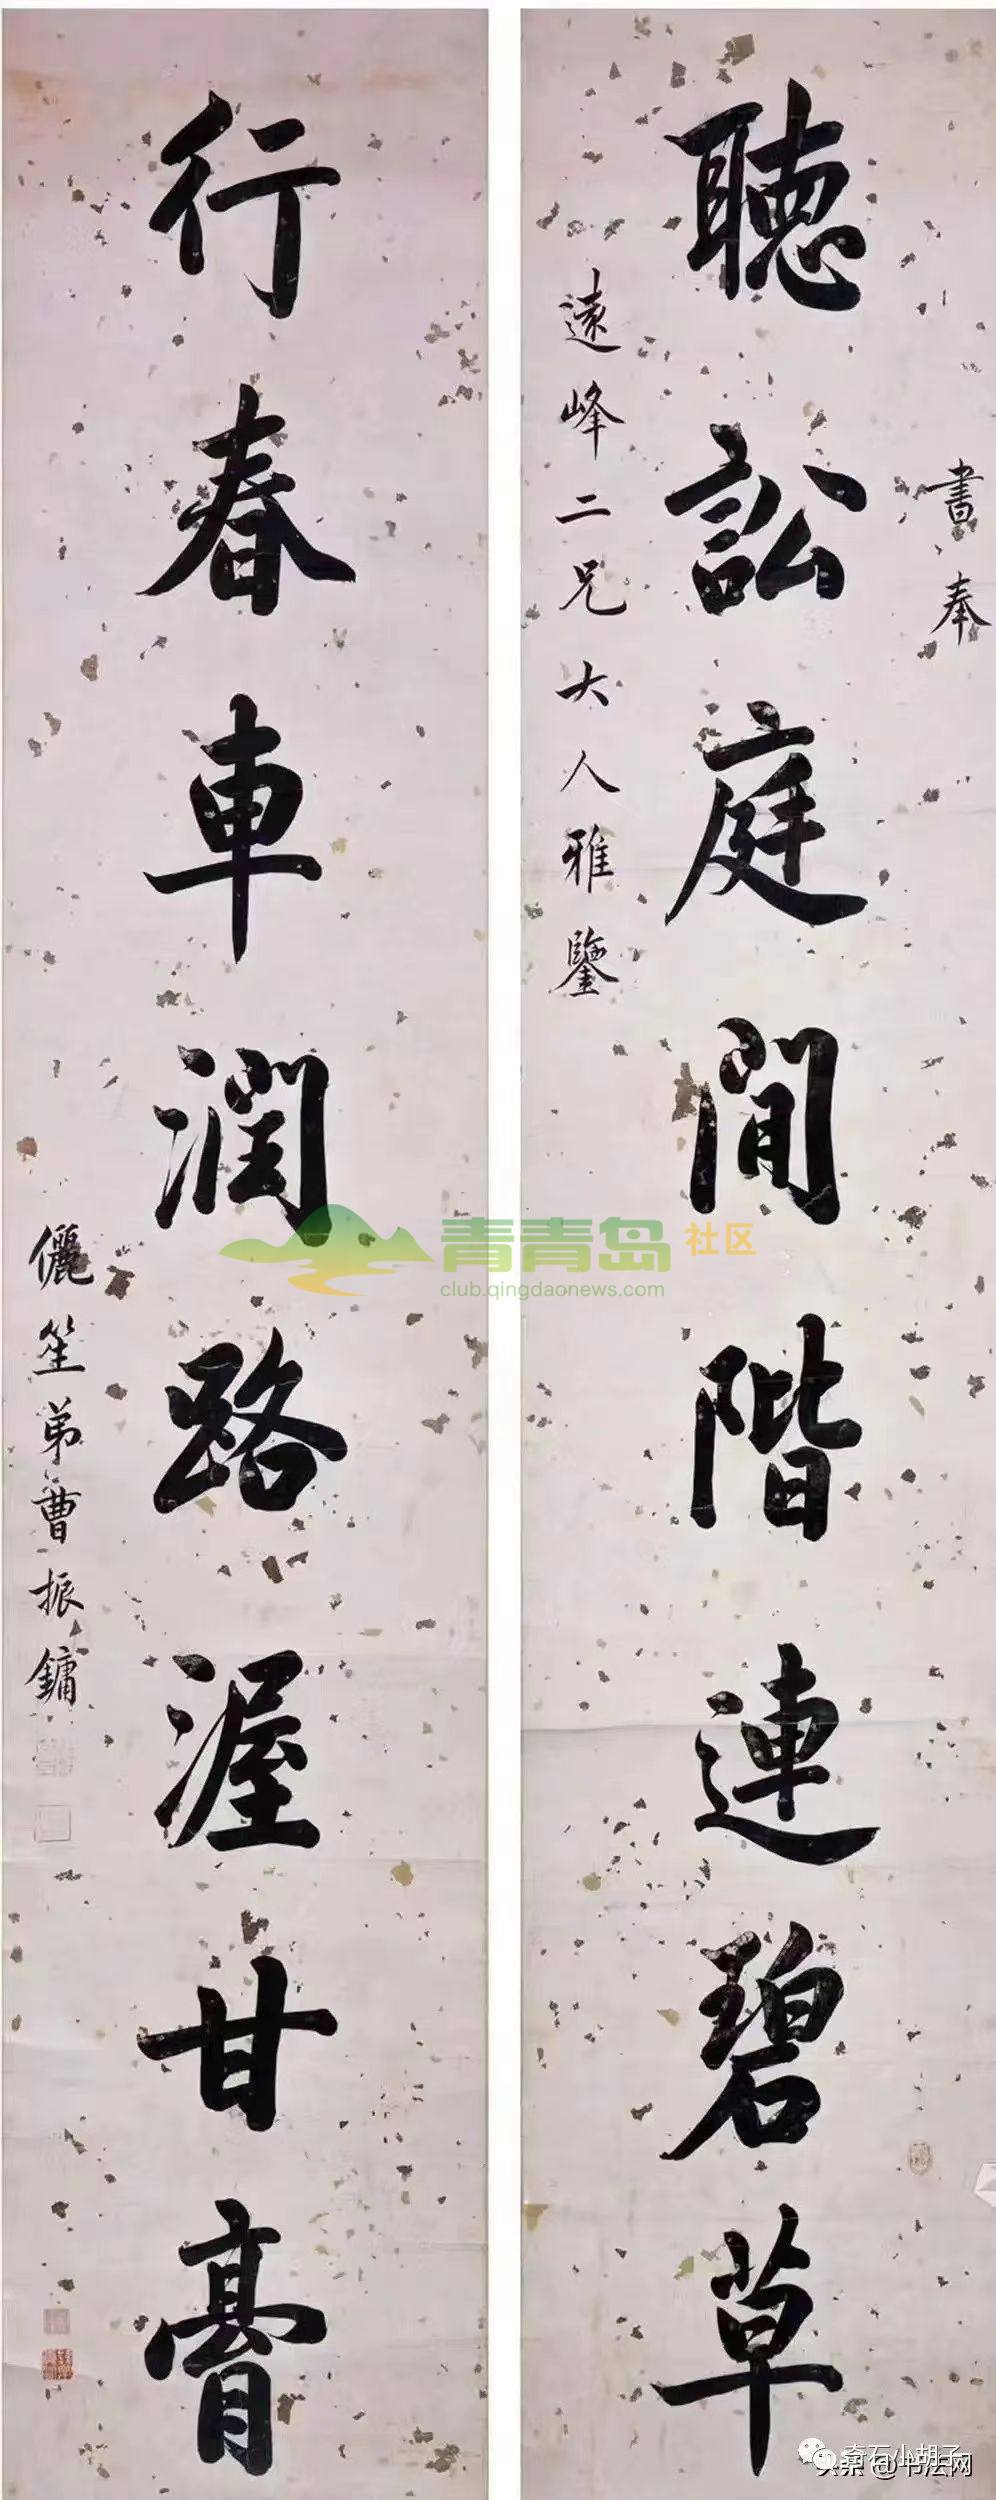 書奉
聽訟庭閒階連碧草
遠峰二兄大人雅鑒
行春車潤路渥甘膏
儷笙弟曹振鏞
青青岛社区
club.qingdaonews.com
奇石小胡子
头条 @书法网